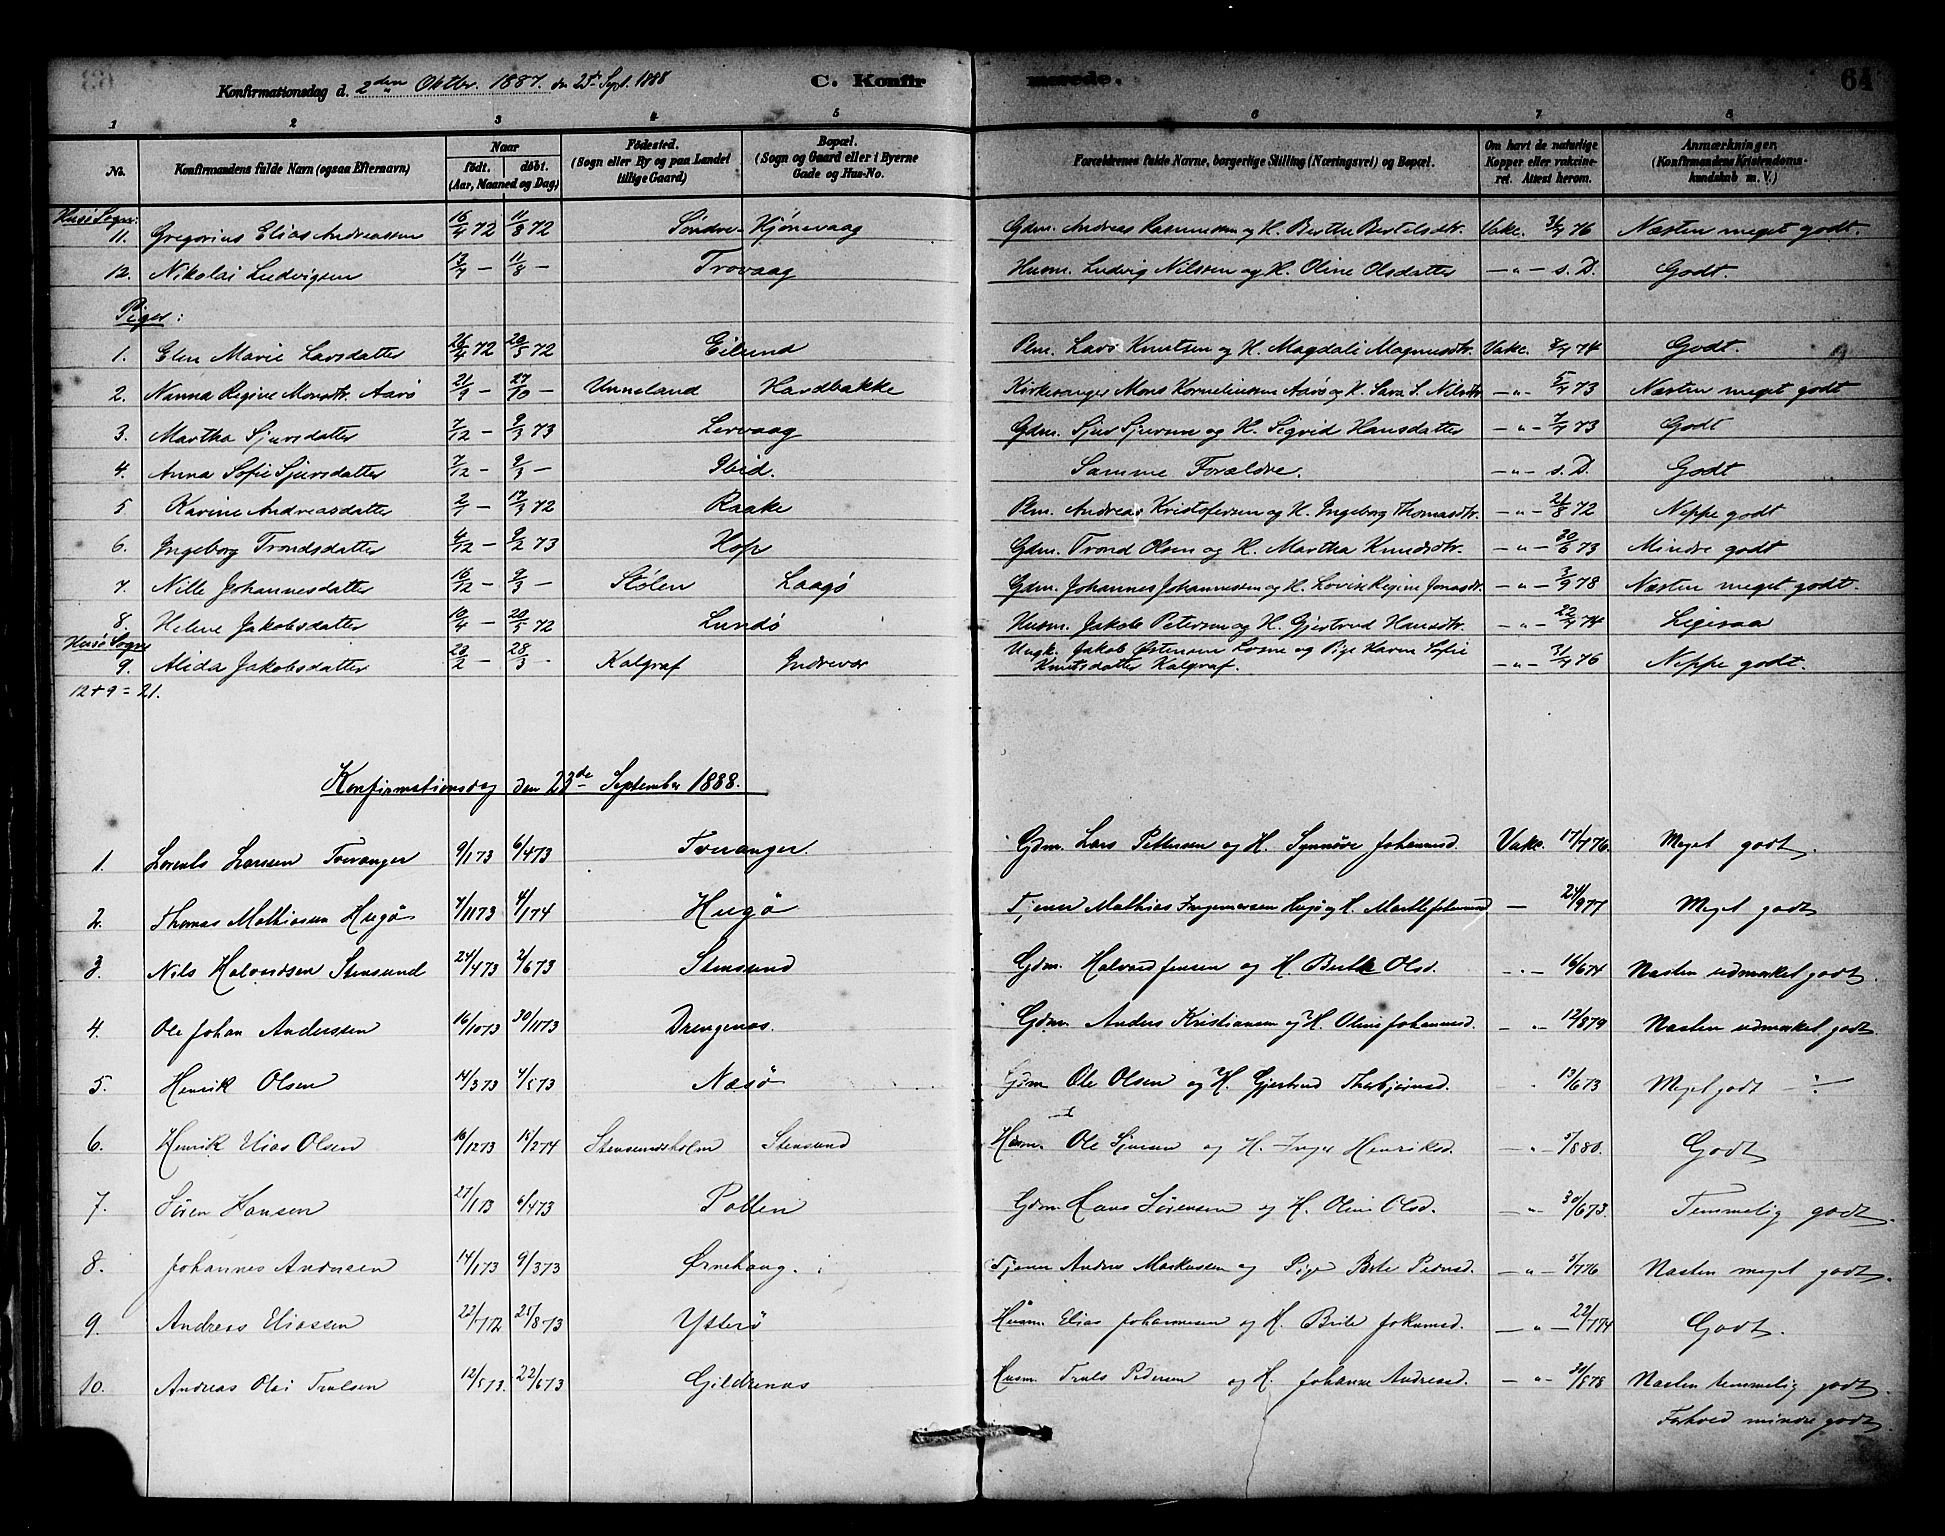 Konfirmationsdag d. 2den Oktbr. 1887. den 23de Sept. 1888 C. Konfirmerede. 64
1 2 3 4 5 6 7 8
No. Konfirmandens fulde Navn (ogsaa Efternavn) Naar født. døbt. (Aar, Maaned og Dag) Fødested. (Sogn eller By og paa Landet tillige Gaard) Bopæl. (Sogn og Gaard eller i Byerne Gade og Hus-No. Forældrenes fulde Navne, borgerlige Stilling (Næringsvei) og Bopæl. Om havt de naturlige Kopper eller vakcineret. Attest herom. Anmærkninger. (Konfirmandens Kristendomskundskab m. V.)
Husø Sogn:
11. Gregorius Elias Andreassen 16/4 72 11/8 72 Søndre-Hjønevaag Gdm. Andreas Rasmussen og H. Berthe Bertelsdtr. Vakc. 31/7 76 Næsten meget godt.
12. Nikolai Ludvigsen 17/7 — 11/8 — Trovaag Husm. Ludvig Nilsen og H. Oline Olsdatter — " — s. D. Godt.
Piger:
1. Elen Marie Larsdatter 26/4 72 20/5 72 Eilund Plm. Lars Knutsen og H. Magdali Magnusdtr. Vakc. 8/7 74 Godt.
2. Nanna Regine Monsdtr. Aarø 21/9 — 27/10 — Unneland Hardbakke Kirkesanger Mons Korneliussen Aarø og H. Sara S. Nilsdtr. — " — 5/7 73 Næsten meget godt
3. Martha Sjursdatter 7/12 — 9/3 73 Lervaag Gdm. Sjur Sjursen og H. Sigrid Hansdatter — " — 7/7 73 Godt
4. Anna Sofie Sjursdatter 7/12 — 9/3 — Ibid. Samme Forældre. — " — s. D. Godt
5. Karine Andreasdatter 2/1 — 17/3 72 Raake Plm. Andreas Kristofersen og H. Ingeborg Thomasdtr. — " — 21/8 72 Neppe godt
6. Ingeborg Trondsdatter 6/12 — 9/2 73 Hop Gdm. Trond Olsen og H. Martha Knudsdtr. — " — 30/6 73 Mindre godt
7. Nille Johannesdatter 16/12 — 9/3 — Stølen Laagø Gdm. Johannes Johannessen og H. Lovise Regine Jonasdtr. — " — 3/9 78 Næsten meget godt.
8. Helene Jakobsdatter 10/4 — 20/5 72 Lundø Husm. Jakob Petersen og H. Gjertrud Hansdtr. — " — 22/7 74 Ligesaa
Husø Sogn
9. Alida Jakobsdatter 20/2 — 28/3 — Kalgraf Indrevær Ungk. Jakob Østensen Losne og Pige Karen Sofie Knutsdatter Kalgraf. — " — 31/7 76 Neppe godt.
12 + 9 = 21.
Konfirmationsdag den 23de September 1888.
1. Lorents Larsen Tveranger 9/1 73 6/4 73 Tveranger Gdm. Lars Pettersen og H. Synnøve Johannesd. Vakc. 17/7 76. Meget godt.
2. Thomas Mathiassen Hugø 7/11 73 4/1 74 Hugø Tjener Mathias Ingemarsen Hugø og H. Marthe Johannesd — 24/9 77 Meget godt
3. Nils Halvardsen Stensund 24/4 73 2/6 73 Stensund Gdm. Halvard Jensen og H. Berthe Olsd. — " — 16/6 74 Næsten udmærket godt.
4. Ole Johan Anderssen 16/10 73 30/11 73 Drengenes. Gdm. Anders Kristiansen og H. Oline Johannesd. — " — 12/8 79 Næsten udmærket godt.
5. Henrik Olsen 14/3 73 4/5 73 Næsø Gdm Ole Olsen og H. Gjertrud Thorbjørnsd. " 13/6 73 Meget godt
6. Henrik Elias Olsen 16/12 73 15/2 74 Stensundsholm Stensund Husm. Ole Sjursen og H. Inger Henriksd. — " — 5/8 80. Godt
7. Søren Hansen 27/1 73 6/4 73 Pollen Gdm. Hans Sørensen og H. Oline Olsd. — " — 30/6 73. Temmelig godt.
8. Johannes Andersen 14/1 73 9/3 73 Ørnehaug. Tjener Anders Markussen og Pige Berte Pedersd. — " — 5/7 76 Næsten meget godt.
9. Andreas Eliassen 22/7 72 25/8 73 Ytterø Husm. Elias Johannesen og H. Brite Jokumsd. — " — 22/7 74 Godt.
10. Andreas Olai Trulsen 12/5 73. 22/6 73 Gildrenes Husm. Truls Pedersen og H. Johanne Andreasd. — " — 31/8 78 Næsten temmelig godt.
Forhold mindre godt.